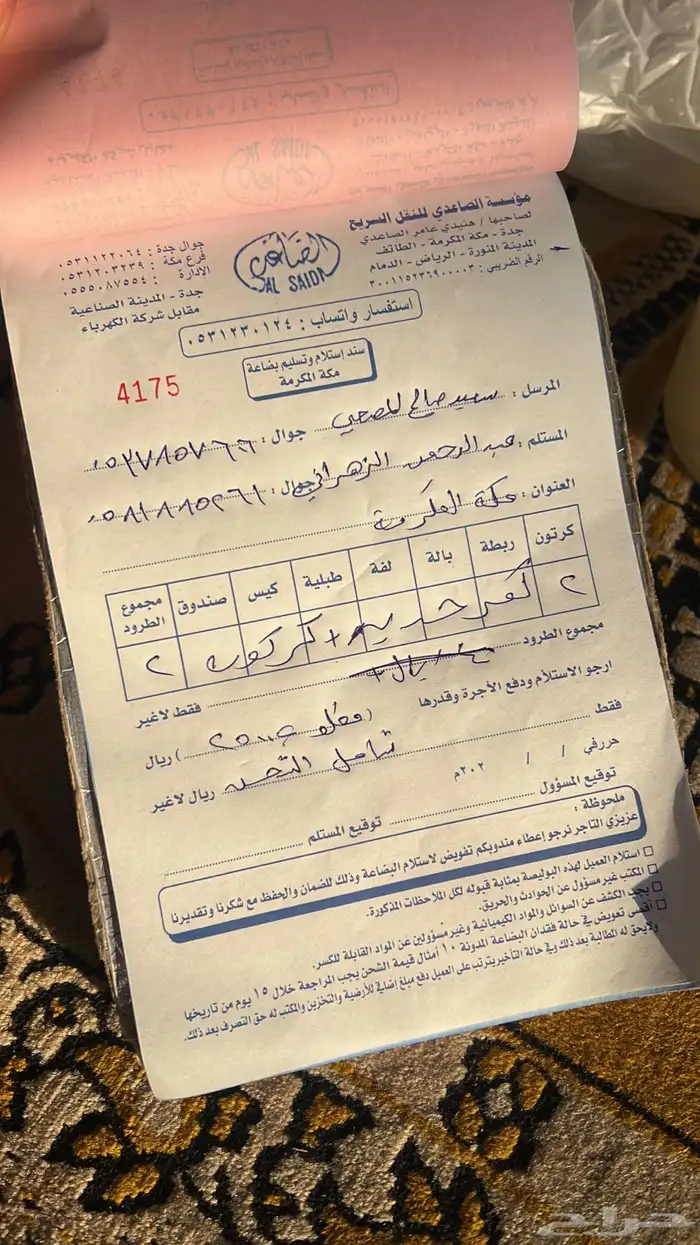 مؤسسة الصاعدي للنقل السريع
لصاحبها / هنيدي عامر الصاعدي
جدة - مكة المكرمة - الطائف
المدينة المنورة - الرياض - الدمام
الرقم الضريبي : ٣٠٠١١٥٢٣٦٩٠٠٠٠٣
الصاعدي
AL SAIDI
جوال جدة : ٠٥٣١١٢٢٠٦٤
فرع مكة : ٠٥٣١٢٠٣٢٣٩
الادارة : ٠٥٥٥٠٨٧٥٥٤
جدة - المدينة الصناعية
مقابل شركة الكهرباء
استفسار واتساب : ٠٥٣١٢٣٠١٢٤
سند إستلام وتسليم بضاعة
مكة المكرمة
4175
المرسل : سعيد صالح المصحبي جوال : ٠٥٢٧٨٥٧٦٦
المستلم : عبد الرحمن الزهراني جوال : ٠٥٨١٨٨٥٢٦١
العنوان : مكة المكرمة
كرتون ربطة بالة لفة طبلية كيس صندوق مجموع الطرود
٢ كفر حديد + كرتون ٢
مجموع الطرود فقط لاغير
ارجو الاستلام ودفع الأجرة وقدرها ( ) ريال
فقط شامل التحميل ريال لاغير
حررفي / / ٢٠٢م
توقيع المسؤول توقيع المستلم
ملحوظة :
عزيزي التاجر نرجو إعطاء مندوبكم تفويض لاستلام البضاعة وذلك للضمان والحفظ مع شكرنا وتقديرنا
استلام العميل لهذه البوليصة بمثابة قبوله لكل الملاحظات المذكورة.
المكتب غير مسؤول عن الحوادث والحريق.
يجب الكشف عن السوائل والمواد الكيميائية وغير مسؤولين عن المواد القابلة للكسر.
أقصى تعويض في حالة فقدان البضاعة المدونة ١٠ أمثال قيمة الشحن يجب المراجعة خلال ١٥ يوم من تاريخها
ولايحق له المطالبة بعد ذلك وفي حالة التأخير يترتب على العميل دفع مبلغ إضافي للأرضية والتخزين والمكتب له حق التصرف بعد ذلك.
حراج